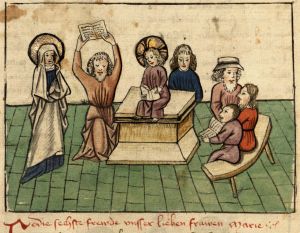 die sechste frewde unser lieben frawen Marie